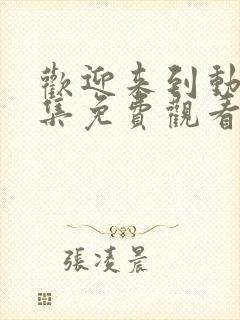 歡迎來到動
集免費觀看
張凌晨